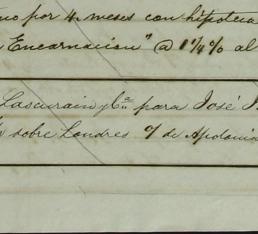 no por 4 meses con hipoteca
Encarnacion" @ 1 1/4 % al
Lascurain y Cía para José
sobre Londres o/ de Apolonia